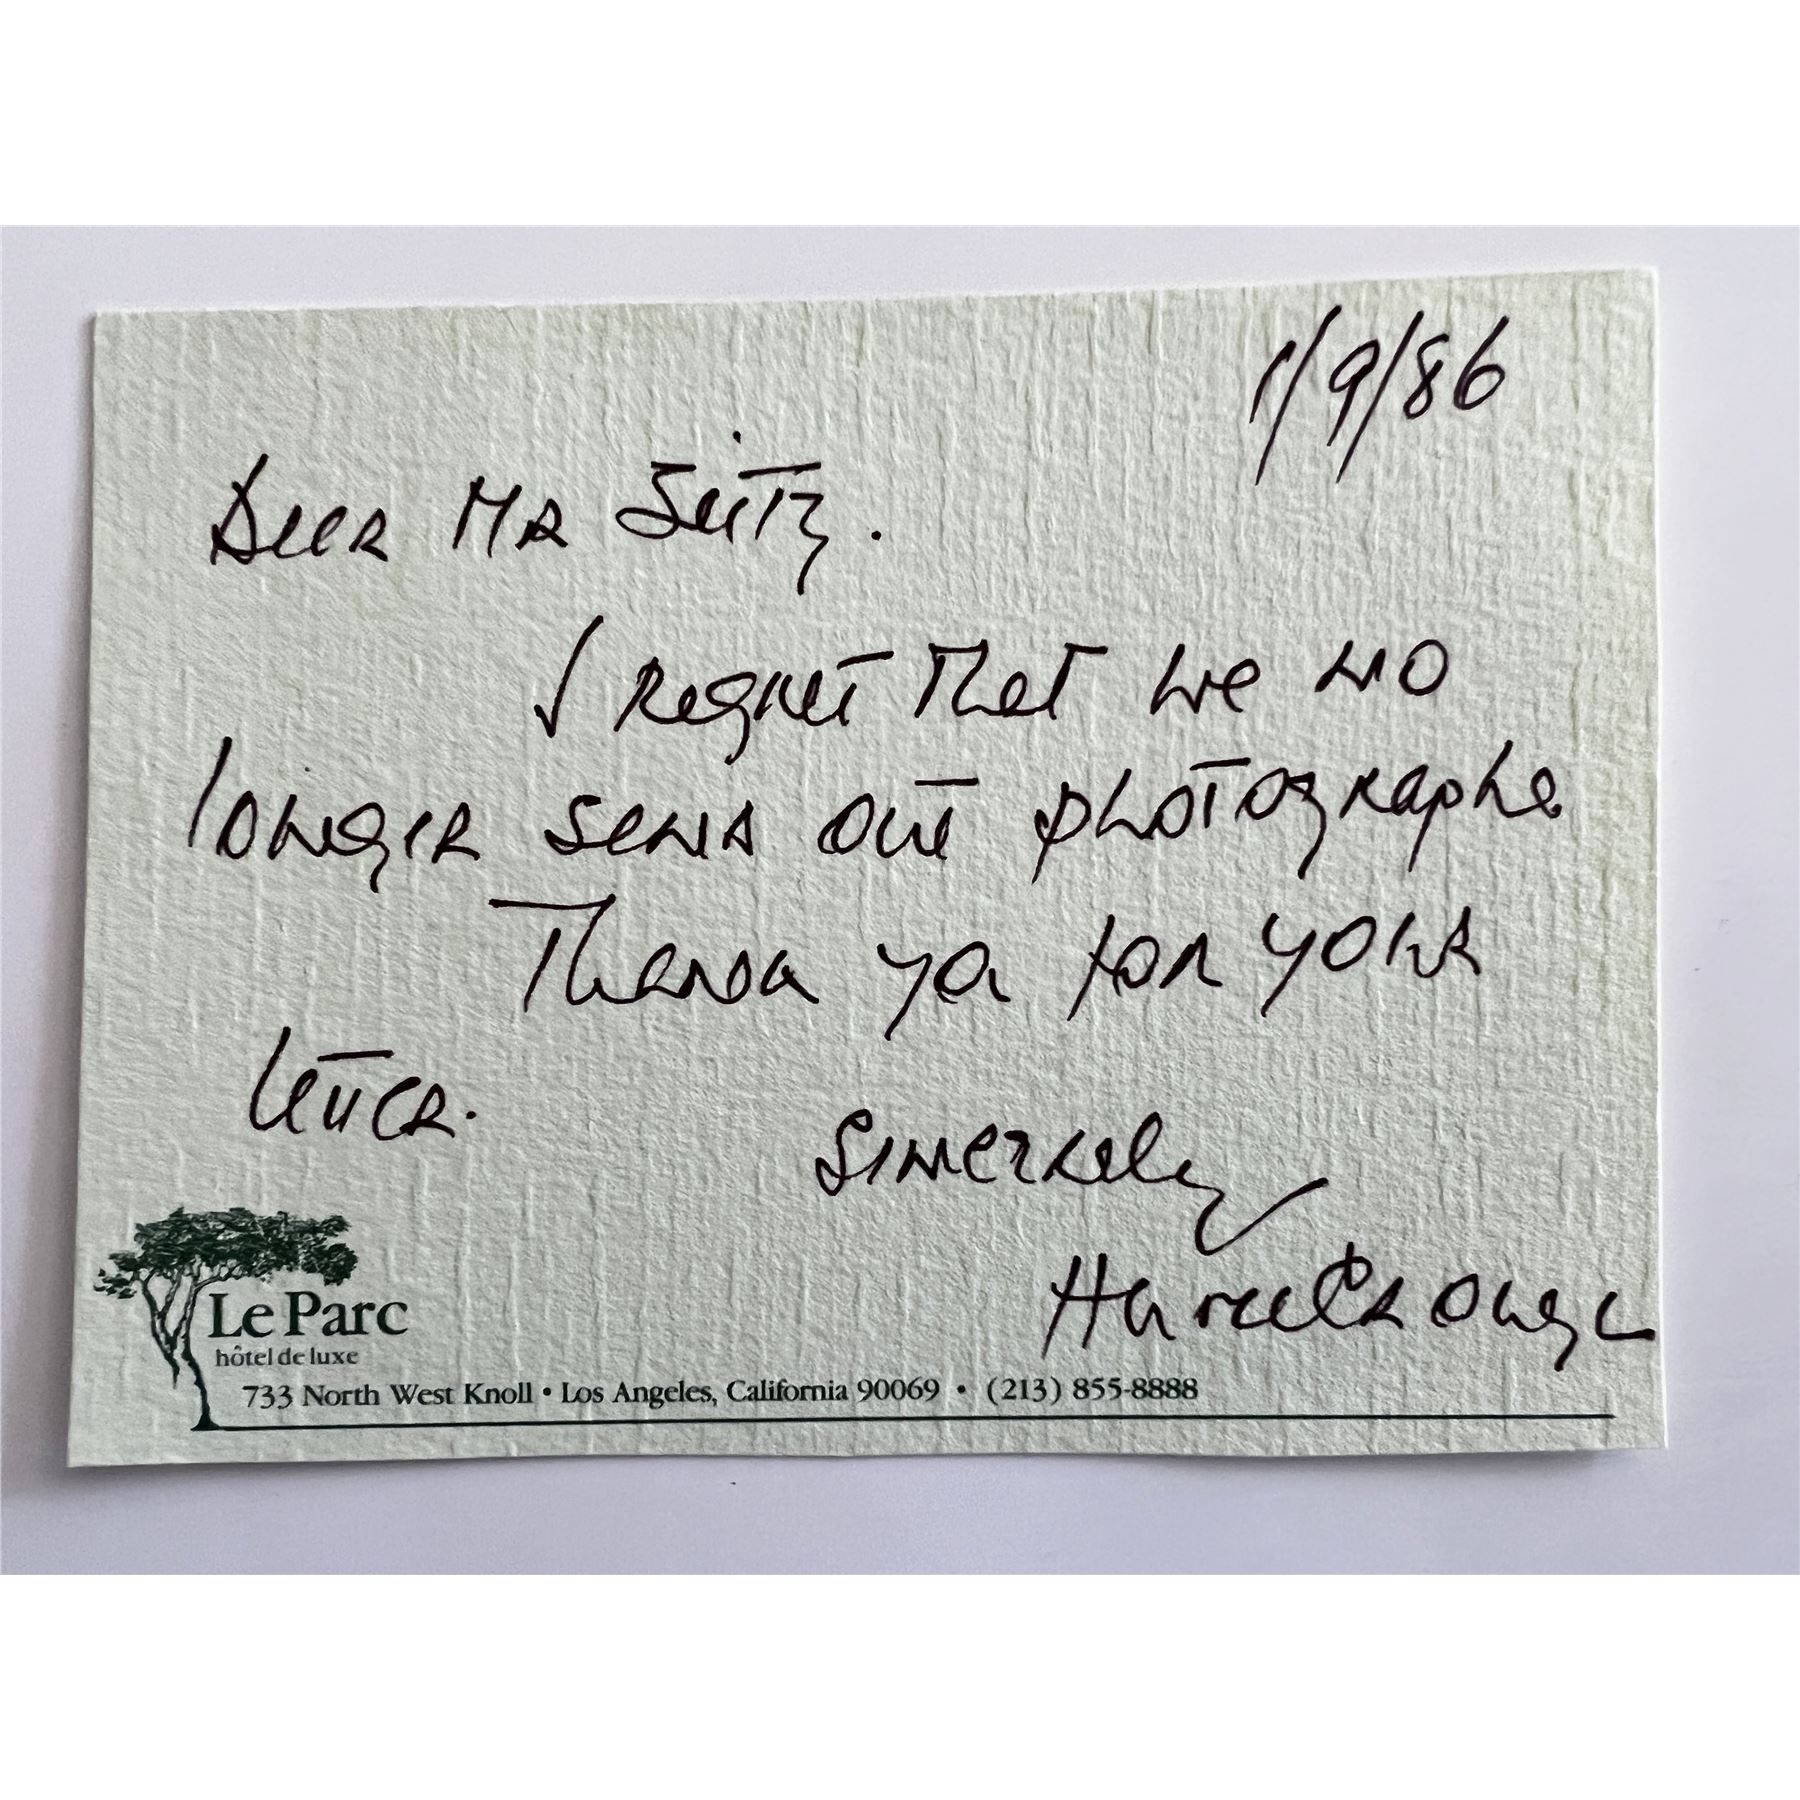 1/9/86
Dear Mr Seitz.
I regret that we no
longer send out photographs
Thank you for your
letter.
Sincerely
Hume Cronyn
Le Parc
hôtel de luxe
733 North West Knoll • Los Angeles, California 90069 • (213) 855-8888